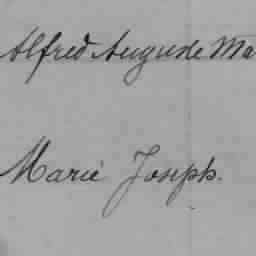 Alfred Auguste Ma
Marie Joseph.